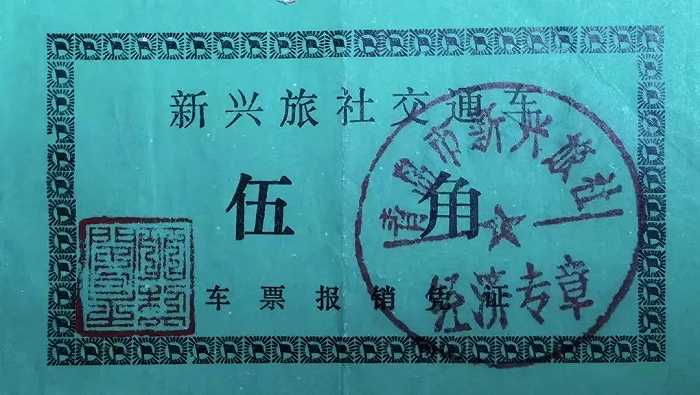 新兴旅社交通车
伍角
车票报销凭证
青岛市新兴旅社
经济专章